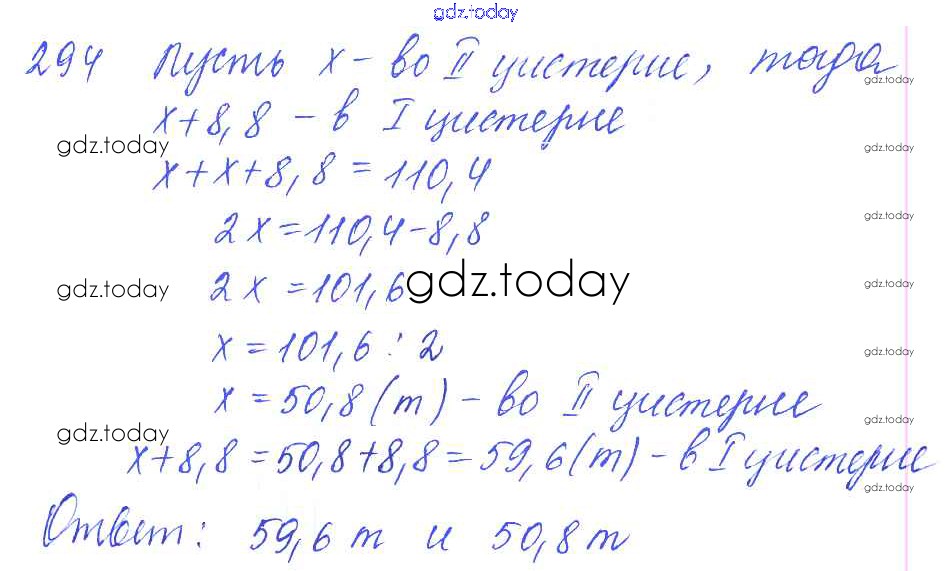 gdz.today
294 Пусть x - во II цистерне, тогда
gdz.today
x+8,8 - в I цистерне
gdz.today
gdz.today
x+x+8,8=110,4
gdz.today
2x=110,4-8,8
gdz.today
2x=101,6
gdz.today
gdz.today
x=101,6:2
gdz.today
x=50,8(т) - во II цистерне
gdz.today
gdz.today
x+8,8=50,8+8,8=59,6(т) - в I цистерне
gdz.today
Ответ: 59,6 т и 50,8 т